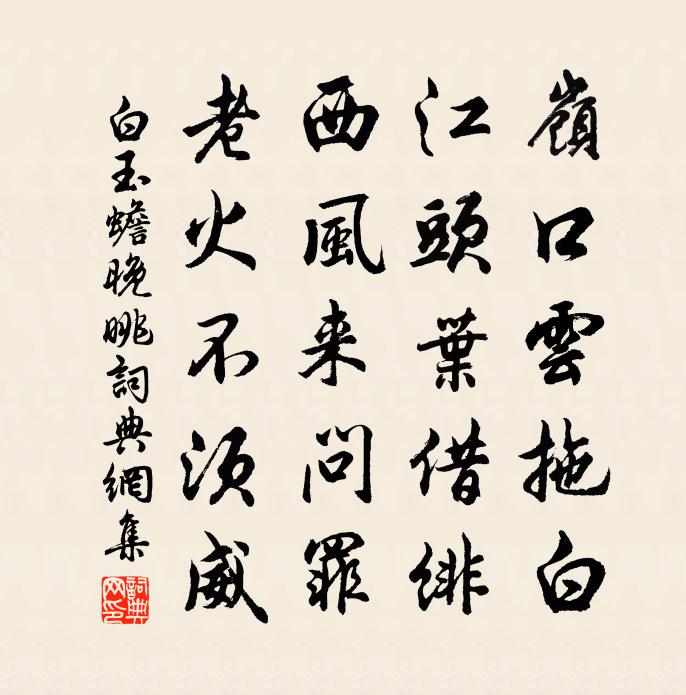 嶺口雲拖白
江頭葉借緋
西風来問罪
老火不須威
白玉蟾晚眺詞典網集
詞典網印